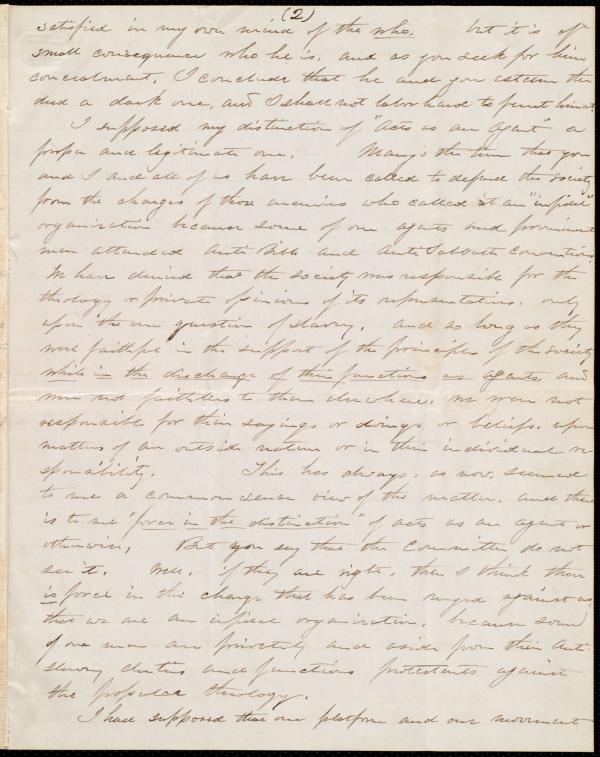 (2)
satisfied in my own mind of the who. but it is of
small consequence who he is, and as you seek for him
concealment, I conclude that he and you esteem the
deed a dark one, and I shall not labor hard to ferret him out.
I supposed my distinction of "acts as an agent" a
proper and legitimate one. Many's the time that you
and I and all of us have been called to defend the society
from the charges of those enemies who called it an "infidel"
organization because some of our agents and prominent
men attended Anti Bible and Anti Sabbath Conventions.
We have denied that the society was responsible for the
theology or private opinions of its representatives, only
upon the one question of slavery, and so long as they
were faithful in the support of the principles of the society
while in the discharge of their functions as agents, and
were not faithless to them elsewhere, we were not
responsible for their sayings or doings or beliefs, upon
matters of an outside nature or in their individual re-
sponsibility. This has always, as now, seemed
to me a common sense view of the matter, and there
is to me "force in the distinction" of acts as an agent or
otherwise. But you say that the Committee do not
see it. Well, if they are right, then I think there
is force in the charge that has been urged against us,
that we are an infidel organization, because some
of our men are privately and aside from their Anti
slavery duties and functions protestants against
the popular theology.
I had supposed that our platform and our movement